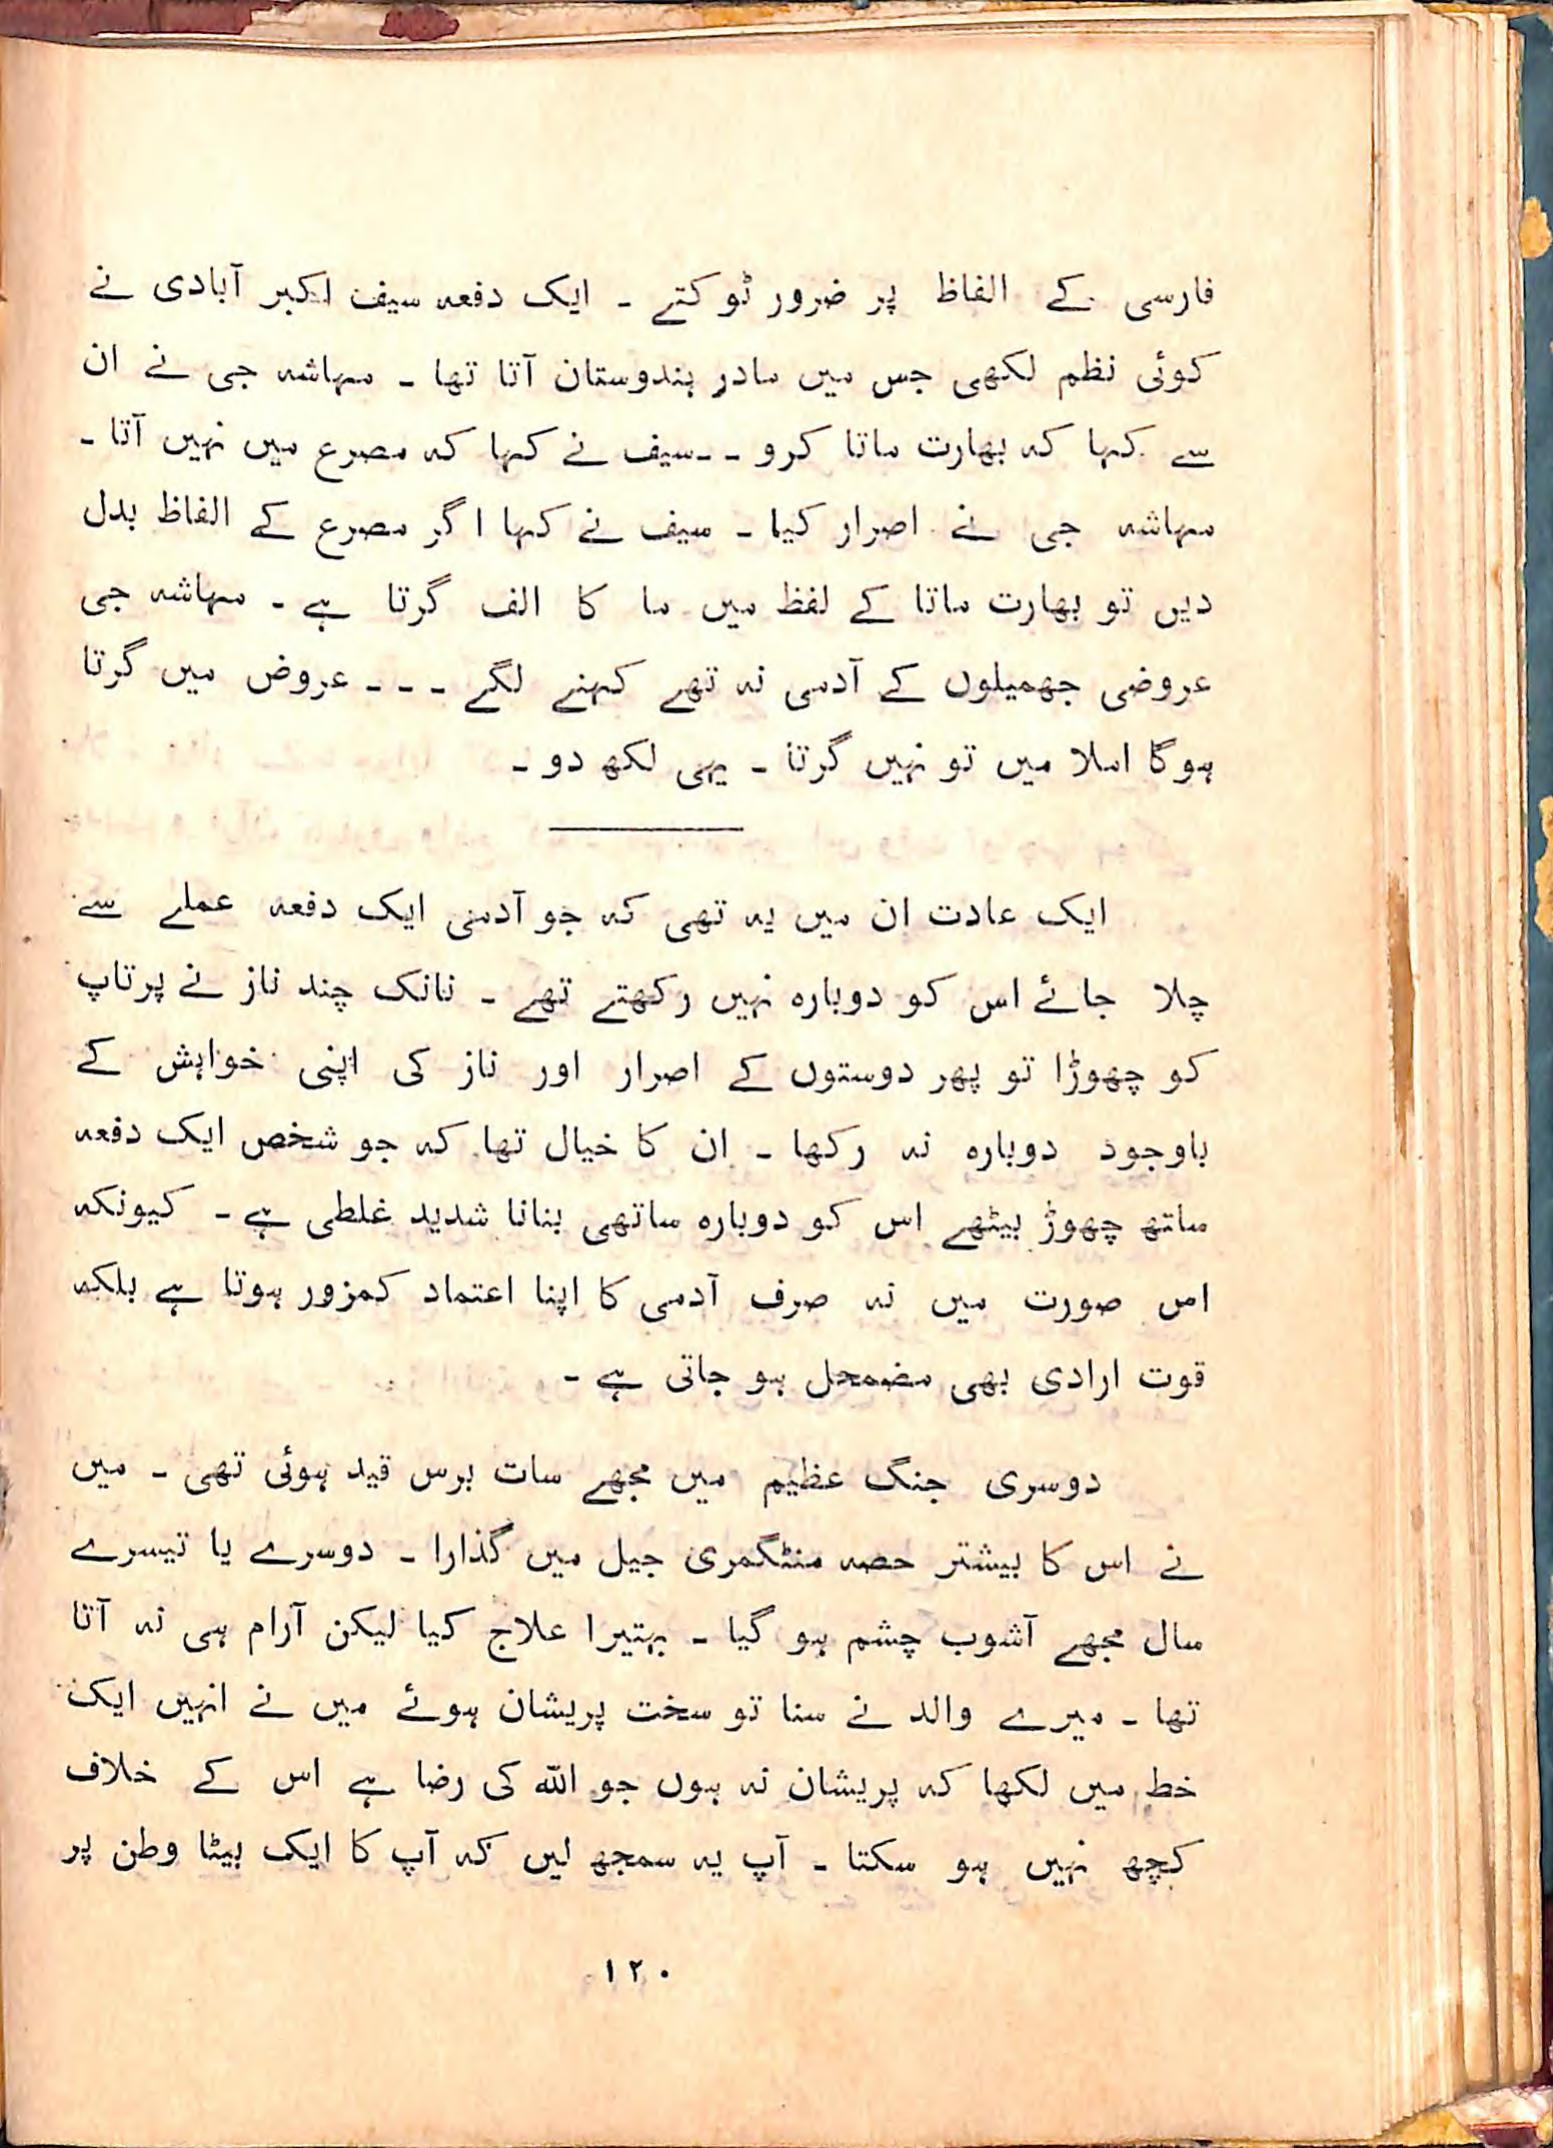 فارسی کے الفاظ پر ضرور ٹوکتے ۔ ایک دفعہ سیف اکبر آبادی نے
کوئی نظم لکھی جس میں مادر ہندوستان آتا تھا ۔ مہاشہ جی نے ان
سے کہا کہ بھارت ماتا کرو ۔ ۔سیف نے کہا کہ مصرع میں نہیں آتا ۔
مہاشہ جی نے اصرار کیا ۔ سیف نے کہا اگر مصرع کے الفاظ بدل
دیں تو بھارت ماتا کے لفظ میں ما کا الف گرتا ہے ۔ مہاشہ جی
عروضی جھمیلوں کے آدمی نہ تھے کہنے لگے ۔ ۔ ۔ عروض میں گرتا
ہوگا املا میں تو نہیں گرتا ۔ یہی لکھ دو ۔
ایک عادت ان میں یہ تھی کہ جو آدمی ایک دفعہ عملے سے
چلا جائے اس کو دوبارہ نہیں رکھتے تھے ۔ نانک چند ناز نے پرتاپ
کو چھوڑا تو پھر دوستوں کے اصرار اور ناز کی اپنی خواہش کے
باوجود دوبارہ نہ رکھا ۔ ان کا خیال تھا کہ جو شخص ایک دفعہ
ساتھ چھوڑ بیٹھے اس کو دوبارہ ساتھی بنانا شدید غلطی ہے ۔ کیونکہ
اس صورت میں نہ صرف آدمی کا اپنا اعتماد کمزور ہوتا ہے بلکہ
قوت ارادی بھی مضمحل ہو جاتی ہے ۔
دوسری جنگ عظیم میں مجھے سات برس قید ہوئی تھی ۔ میں
نے اس کا بیشتر حصہ منٹگمری جیل میں گذارا ۔ دوسرے یا تیسرے
سال مجھے آشوب چشم ہو گیا ۔ بہتیرا علاج کیا لیکن آرام ہی نہ آتا
تھا ۔ میرے والد نے سنا تو سخت پریشان ہوئے میں نے انہیں ایک
خط میں لکھا کہ پریشان نہ ہوں جو اللہ کی رضا ہے اس کے خلاف
کچھ نہیں ہو سکتا ۔ آپ یہ سمجھ لیں کہ آپ کا ایک بیٹا وطن پر
۱۲۰